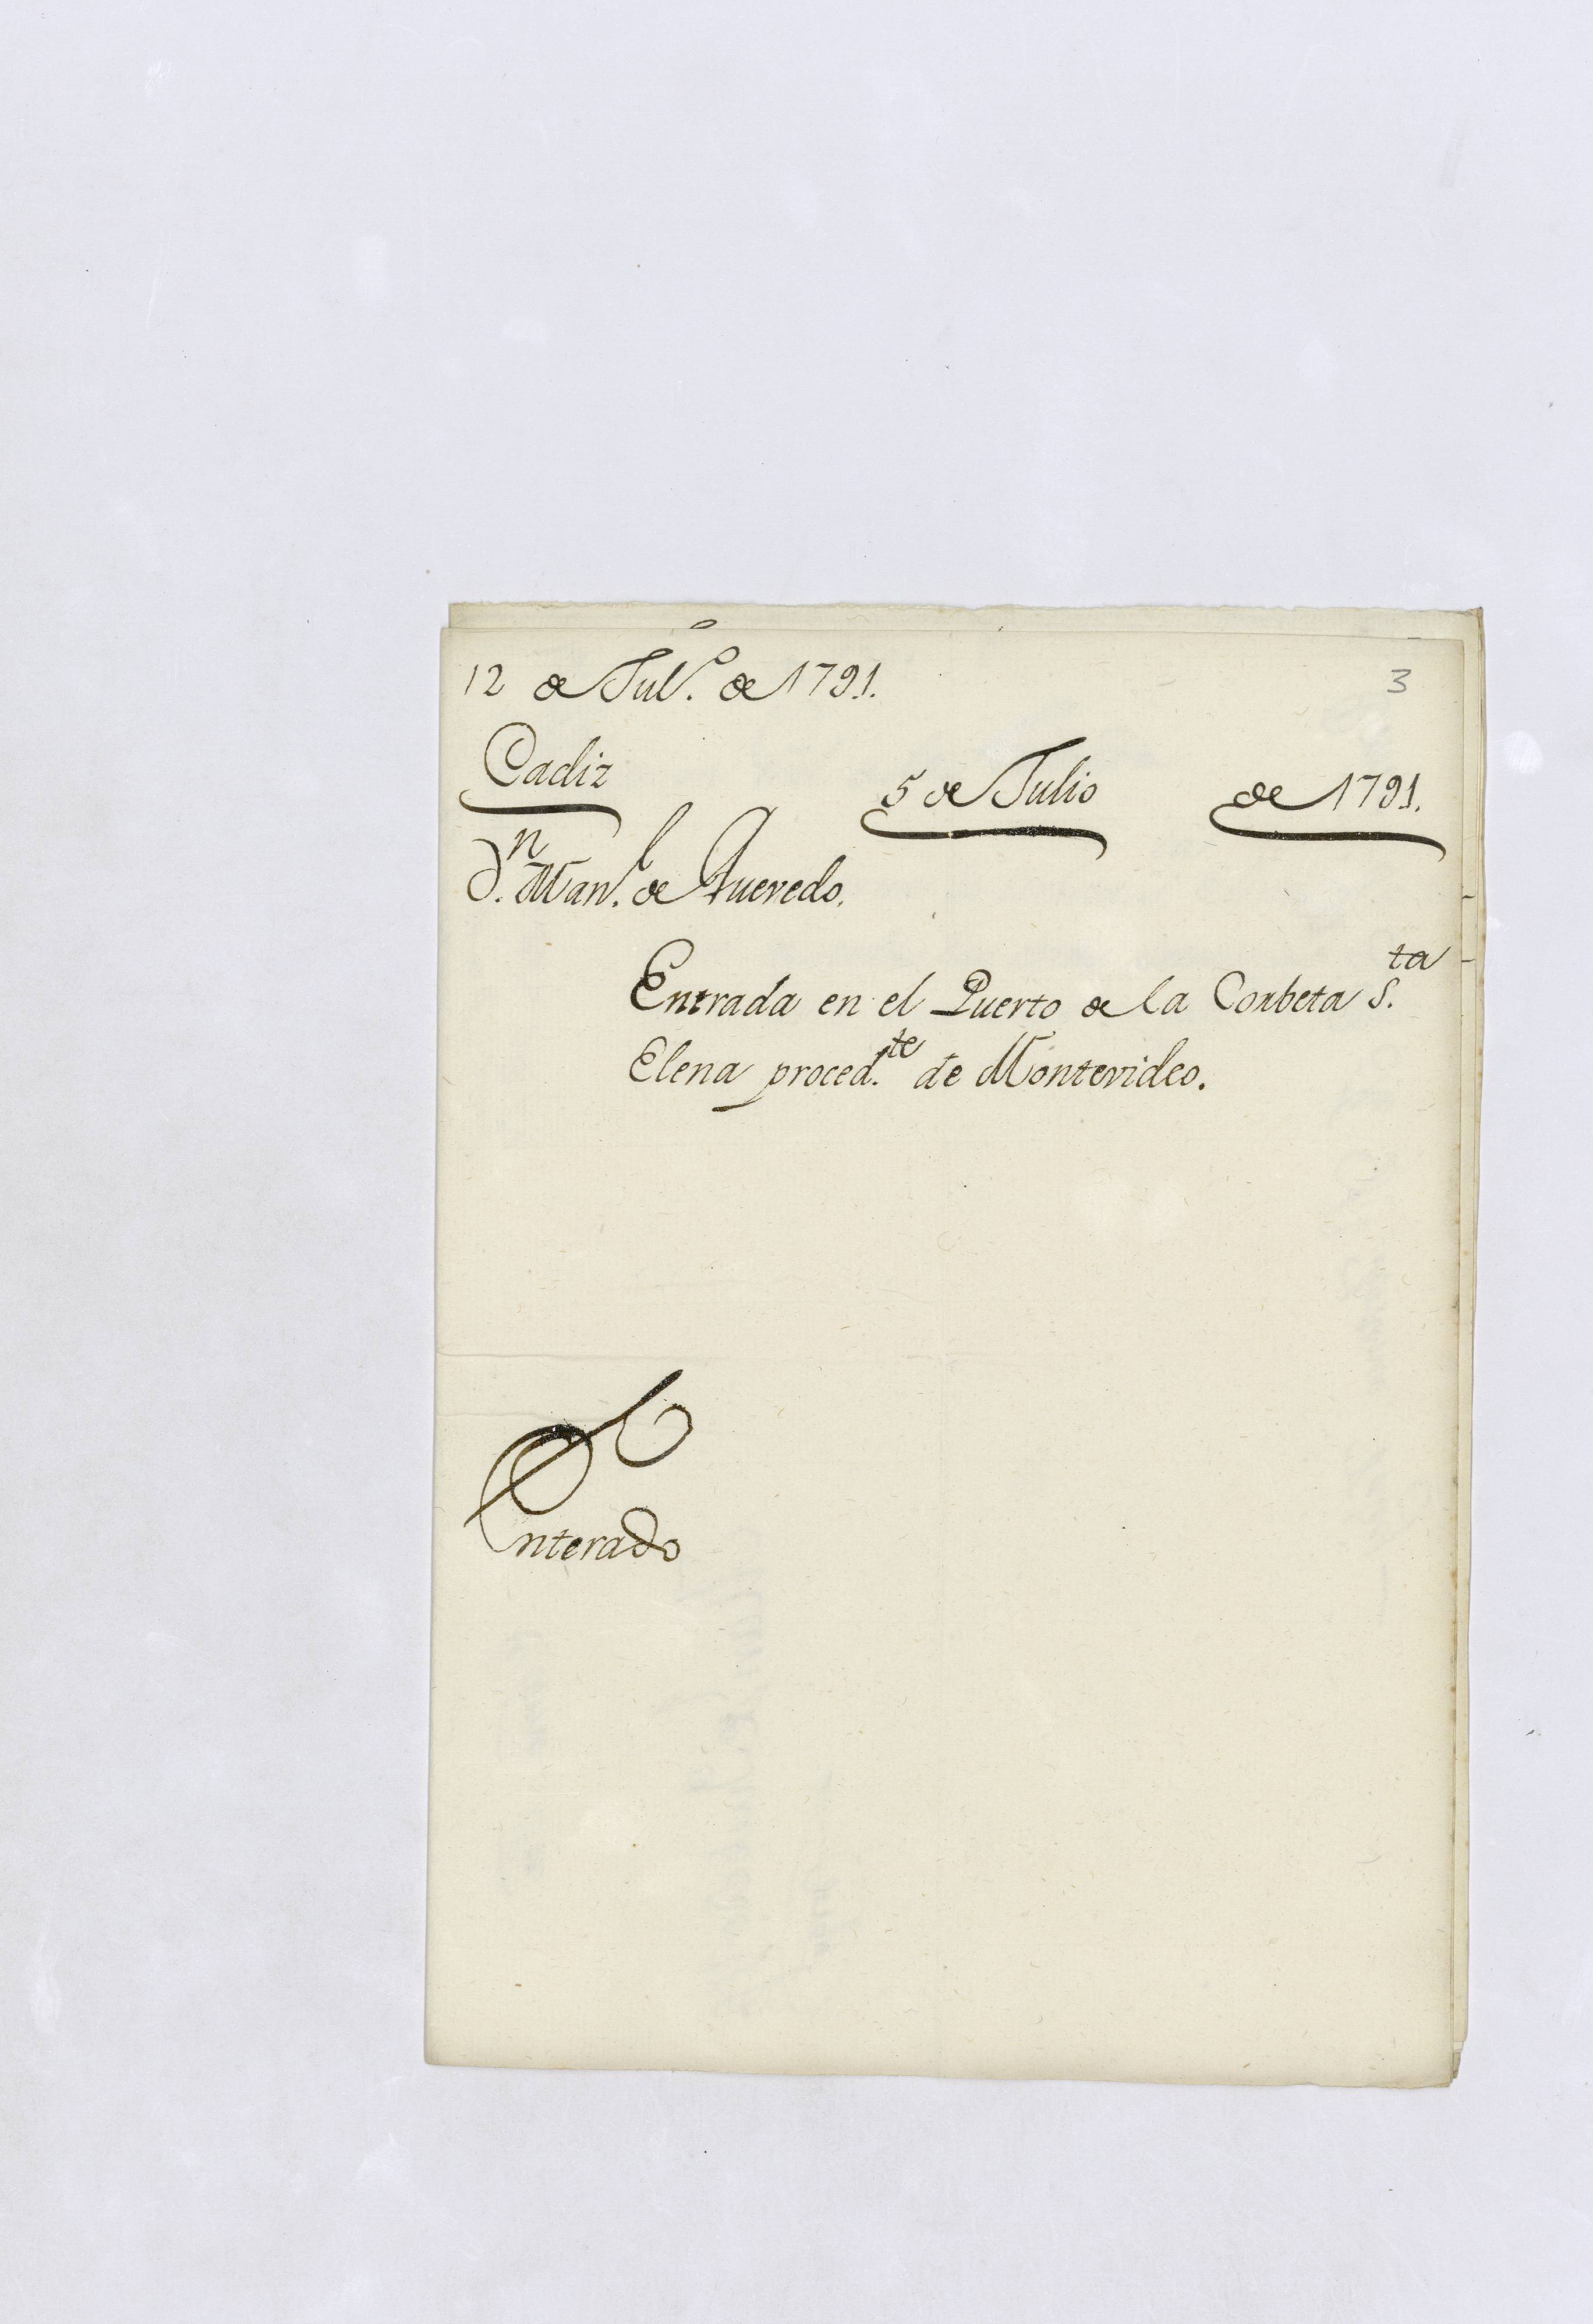 12 de Jul.º de 1791.
3
Cadiz 5 de Julio de 1791.
D.ⁿ Man.ˡ de Quevedo.
Entrada en el Puerto de la Corbeta S.ᵗᵃ
Elena proced.ᵗᵉ de Montevideo.
Enterado